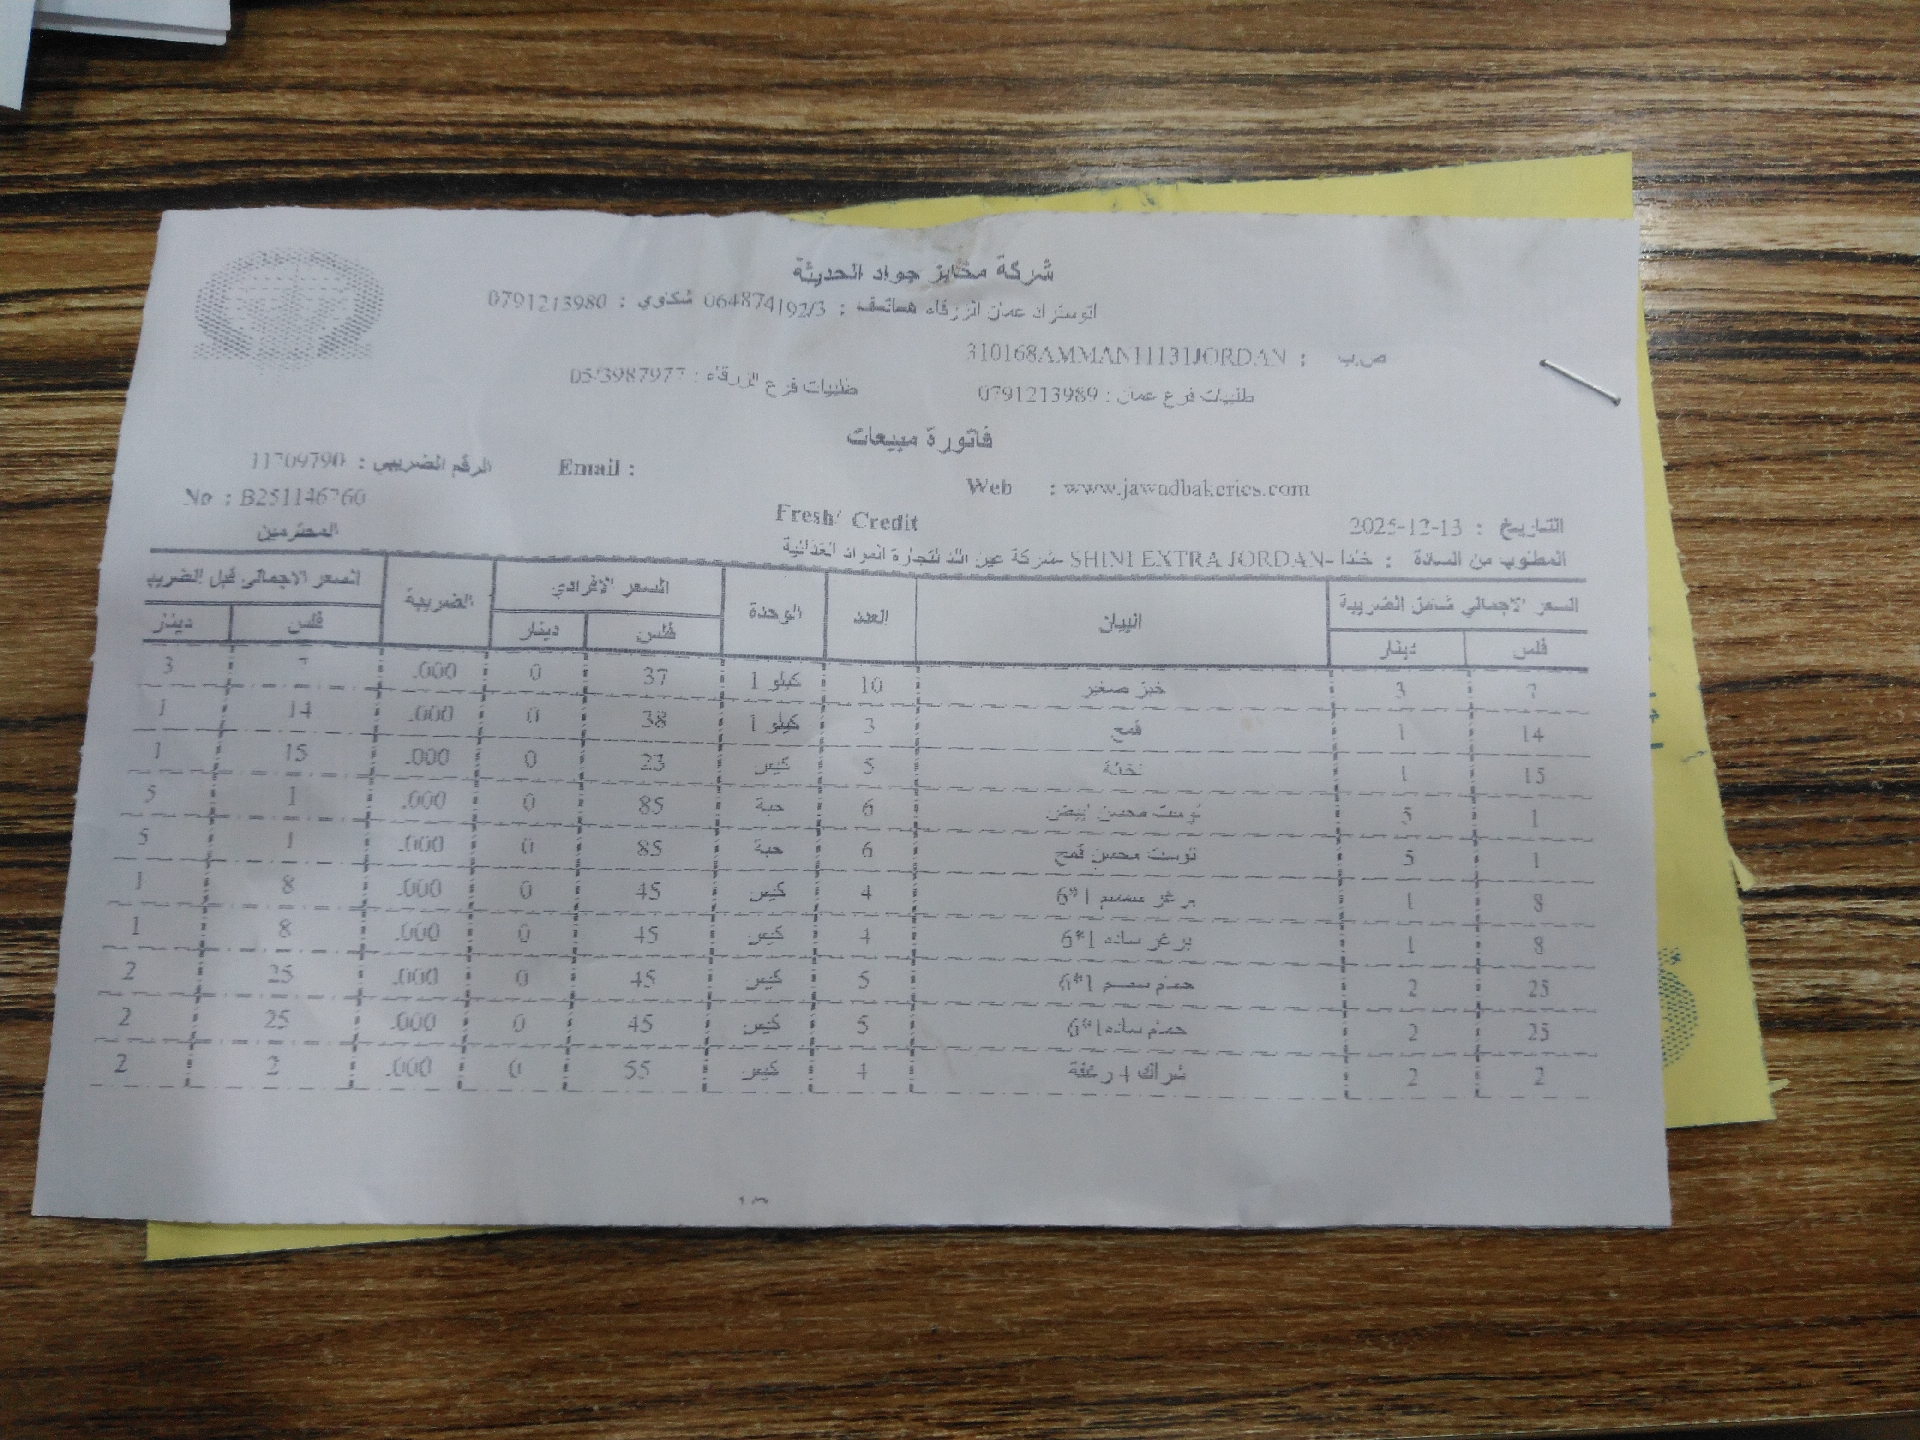 شركة مخابز جواد الحديثة
اتوستراد عمان الزرقاء هاتف : 064874192/3 شكاوي : 0791213980
ص.ب : 310168AMMAN11131JORDAN
طلبيات فرع عمان : 0791213989 طلبيات فرع الزرقاء : 05/3987977
فاتورة مبيعات
Web : www.jawadbakeries.com Email : الرقم الضريبي : 11709790
No : B251146760
التاريخ : 2025-12-13 Fresh/ Credit
المطلوب من السادة : خلدا -SHINI EXTRA JORDAN- شركة عين الثلاثاء لتجارة المواد الغذائية المحترمين
السعر الاجمالي شامل الضريبة البيان العدد الوحدة السعر الافرادي الضريبة السعر الاجمالي قبل الضريب
فلس دينار فلس دينار فلس دينار
7 3 خبز صغير 10 كيلو 1 37 0 .000 7 3
14 1 قمح 3 كيلو 1 38 0 .000 14 1
15 1 نخالة 5 كيس 23 0 .000 15 1
1 5 توست محسن ابيض 6 حبة 85 0 .000 1 5
1 5 توست محسن قمح 6 حبة 85 0 .000 1 5
8 1 برغر سمسم 1*6 4 كيس 45 0 .000 8 1
8 1 برغر ساده 1*6 4 كيس 45 0 .000 8 1
25 2 حمام سمسم 1*6 5 كيس 45 0 .000 25 2
25 2 حمام ساده1*6 5 كيس 45 0 .000 25 2
2 2 شراك 4 رغفة 4 كيس 55 0 .000 2 2